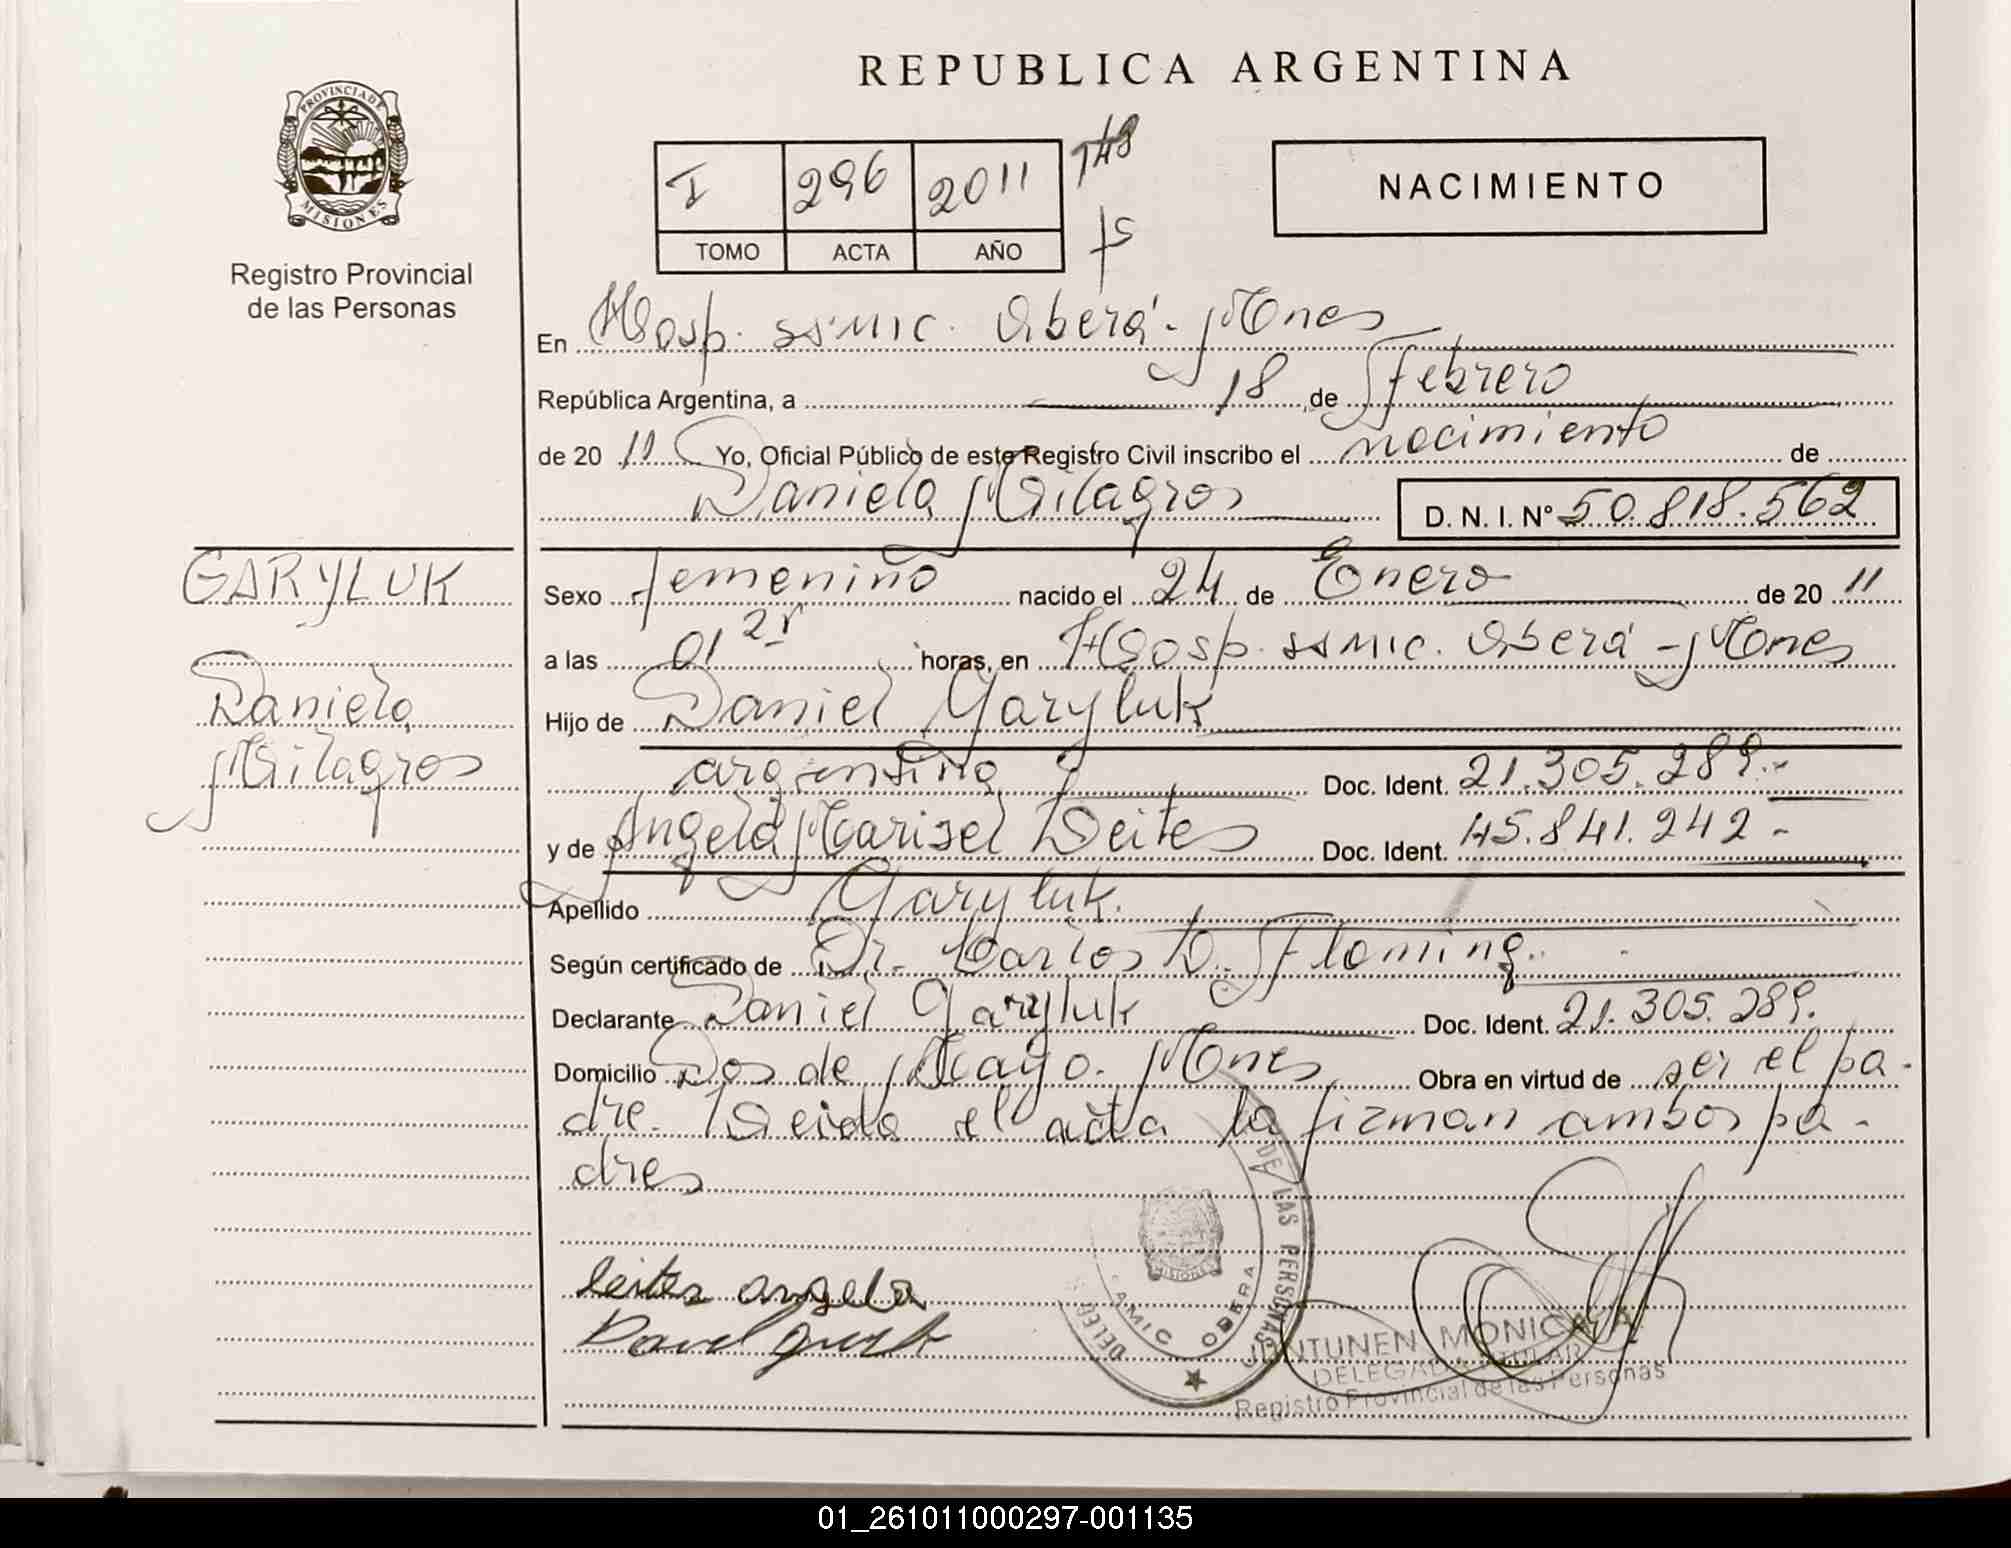 REPUBLICA ARGENTINA
PROVINCIA DE
MISIONES
Registro Provincial
de las Personas
I 296 2011 148
TOMO ACTA AÑO
NACIMIENTO
En Hosp. SSMIC. Oberá - Mnes
República Argentina, a 18 de Febrero
de 20 11 Yo, Oficial Público de este Registro Civil inscribo el nacimiento de
Daniela Milagros D. N. I. Nº 50.818.562
GARYLUK
Daniela
Milagros
Sexo femenino nacido el 24 de Enero de 20 11
a las 01 horas, en Hosp. SSMIC. Oberá - Mnes
Hijo de Daniel Garyluk
argentina Doc. Ident. 21.305.289.-
y de Angela Marisel Leites Doc. Ident. 45.841.242 -
Apellido Garyluk.
Según certificado de Dr. Carlos D. Fleming.
Declarante Daniel Garyluk Doc. Ident. 21.305.289.
Domicilio Dos de Mayo. Mnes Obra en virtud de ser el pa-
dre. Leida el acta la firman ambos pa-
dres
leites angela
DE LAS PERSONAS
MISIONES
AMIC OBERA
DELEG
JUNTUNEN MONICA A.
DELEGADA TITULAR
Registro Provincial de las Personas
01_261011000297-001135